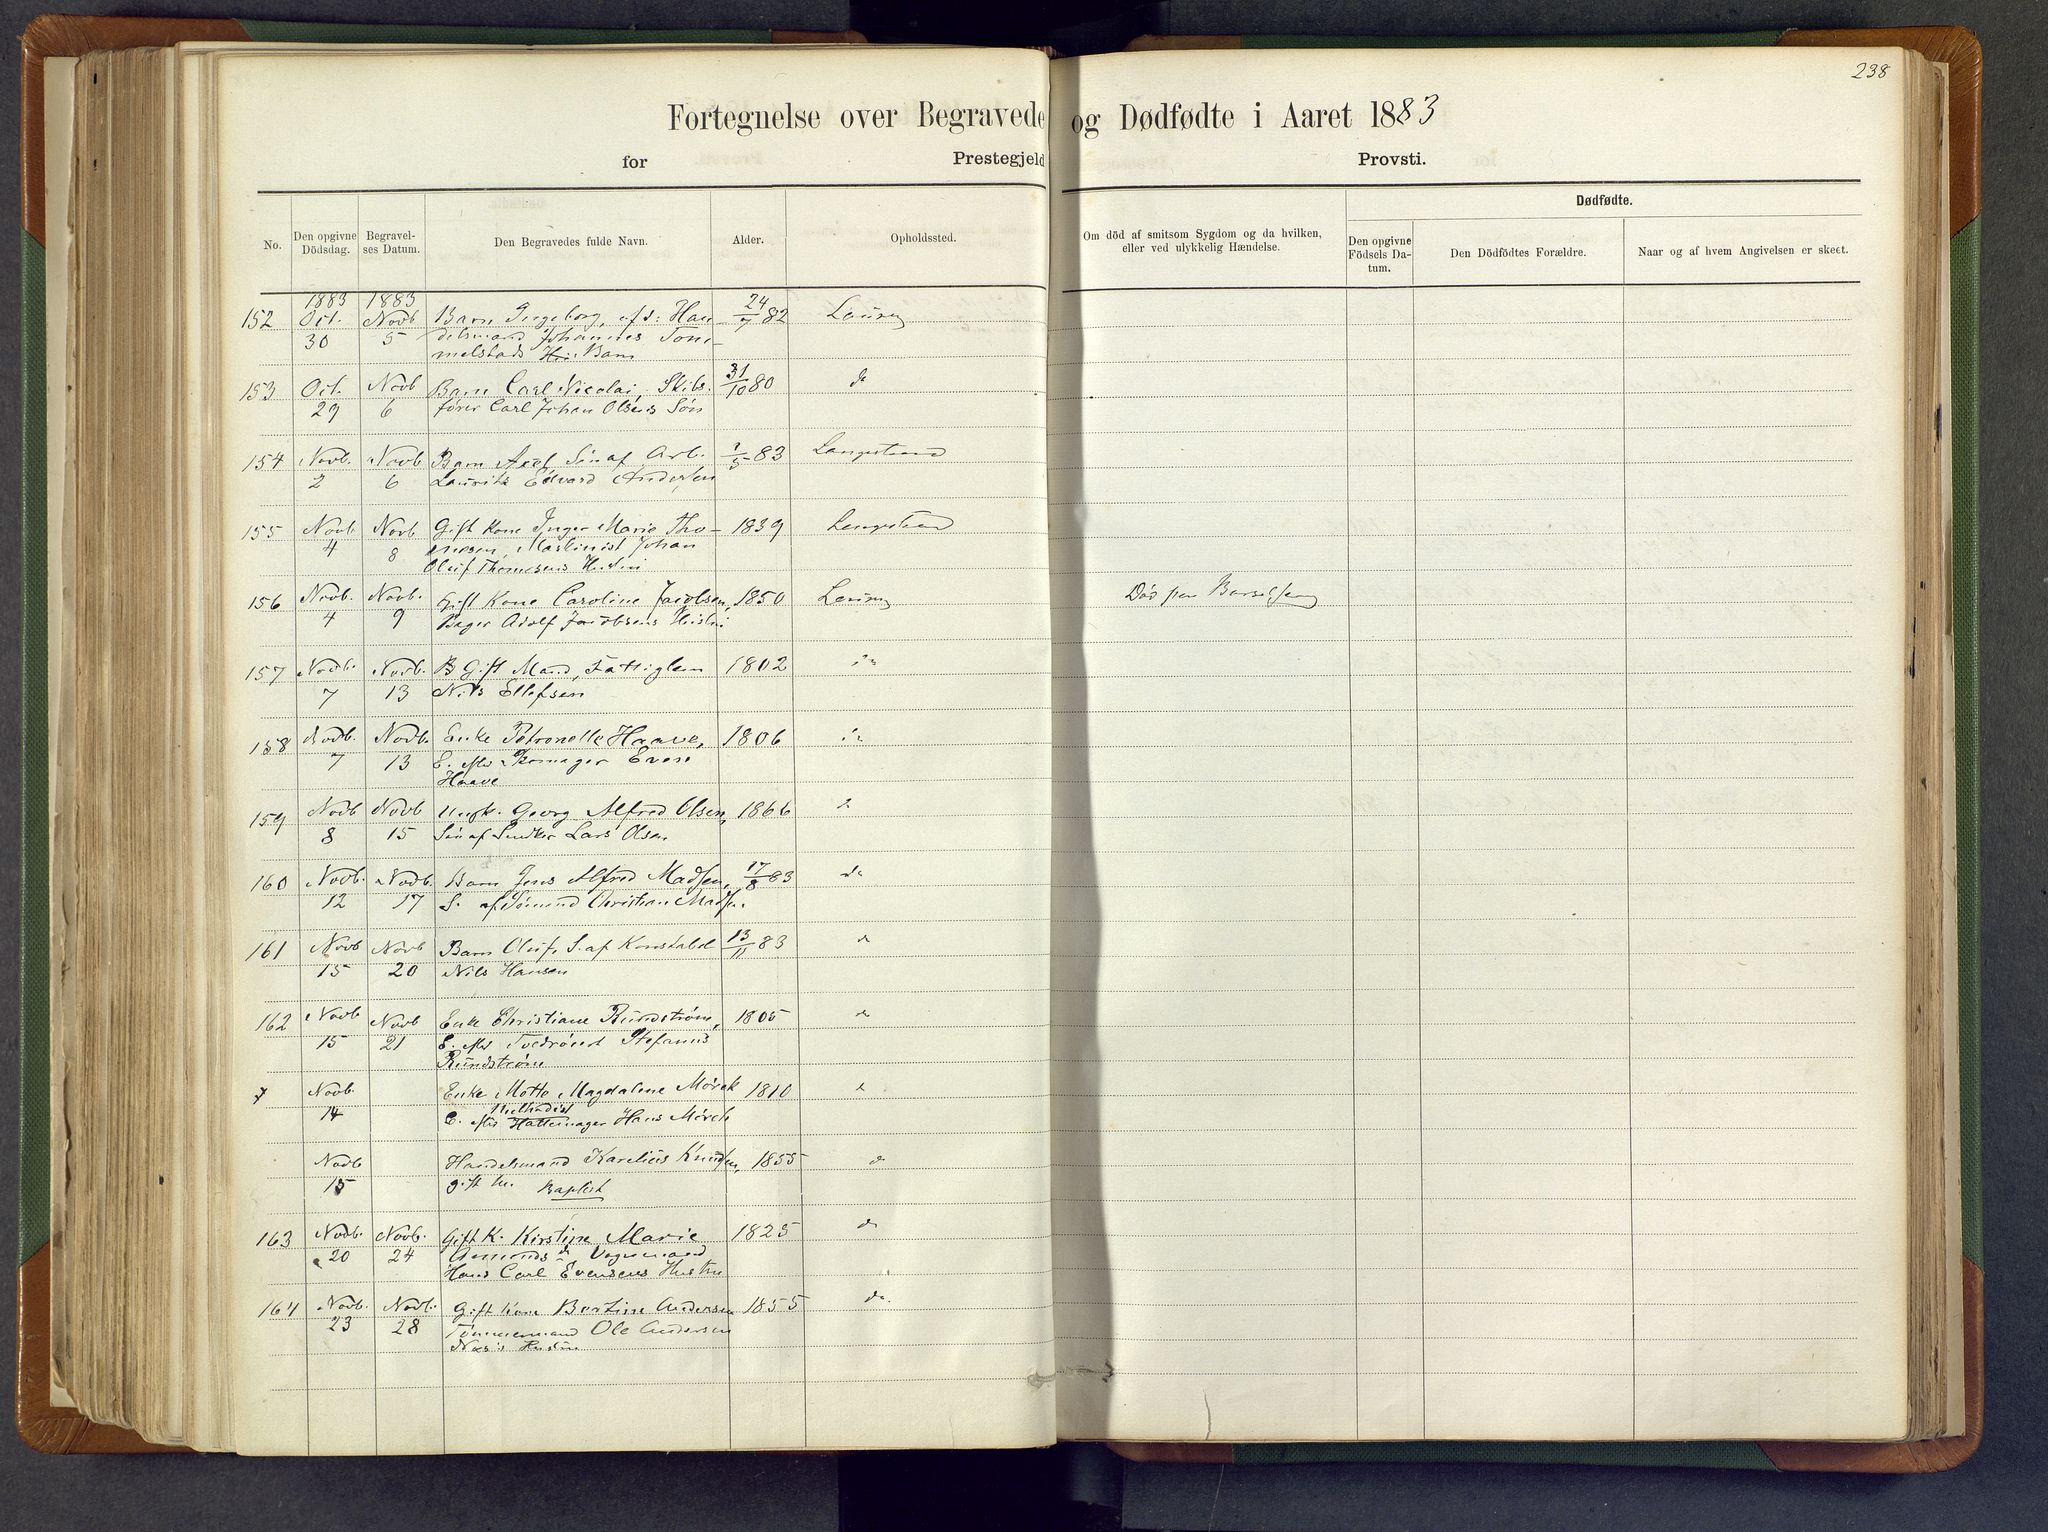 238
Fortegnelse over Begravede og Dødfødte i Aaret 1883
for Prestegjeld Provsti.
No.
Den opgivne Dödsdag.
Begravelses Datum.
Den Begravedes fulde Navn.
Alder.
Opholdssted.
Om död af smitsom Sygdom og da hvilken, eller ved ulykkelig Hændelse.
Dødfødte.
Den opgivne Födsels Datum.
Den Dödfödtes Forældre.
Naar og af hvem Angivelsen er skeet.
1883 1883
152 Oct. Novb Barn Ingeborg, Han- 24/7 82 Laurv
30 5 delsmand Johannes Tom-
melstads Barn
153 Oct. Novb Barn Carl Nicolai, Skibs- 31/10 80 do
29 6 fører Carl Johan Olsens Søn
154 Novb. Novb Barn Axel Søn af Arb. 83 Langestrand
2 6 Laurits Edvard Andersen
155 Novb. Novb. Gift Kone Inger Marie Tho- 1839 Langestrand
4 8 mesen, Maskinist Johan
Oluf Thomesens Hustru
156 Novb. Novb. Gift Kone Caroline Jacobsen, 1850 Laurv Død paa Barselseng
4 9 Bager Adolf Jacobsens Hustru
157 Novb. Novb. Gift Mand, Fattiglem 1802 do
7 13 Nils Ellefsen
158 Novb. Novb. Enke Petronelle Haave, 1806 do
7 13 E. efter Even
Haave
159 Novb Novb Ungk. Georg Alfred Olsen, 1866 do
8 15 Søn af Snedker Lars Olsen
160 Novb. Novb. Barn Jens Alfred Madsen, 17/8 83 do
12 17 S. af Sømand Christian Madsen
161 Novb Novb Barn Oluf, S. af Konstabel 13/11 83 do
15 20 Nils Hansen
162 Novb Novb Enke Christiane Rundstrøm, 1805 do
15 21 E. efter Stefanus
Rundstrøm
Novb. Enke Magdalene Mørck 1810 do
14 Methodist
E. efter Hattemager Hans Mørch
Novb Handelsmand Karelius Knudsen, 1855 do
15 gift m. Baptist
163 Novb. Novb. Gift K. Kirstine Marie 1825 do
20 24 Vognmand
Hans Carl Evensens Hustru
164 Novb. Novb. Gift Kone Bertine Andersen 1855 do.
23 28 Tømmermand Ole Andersen
Næs's Hustru